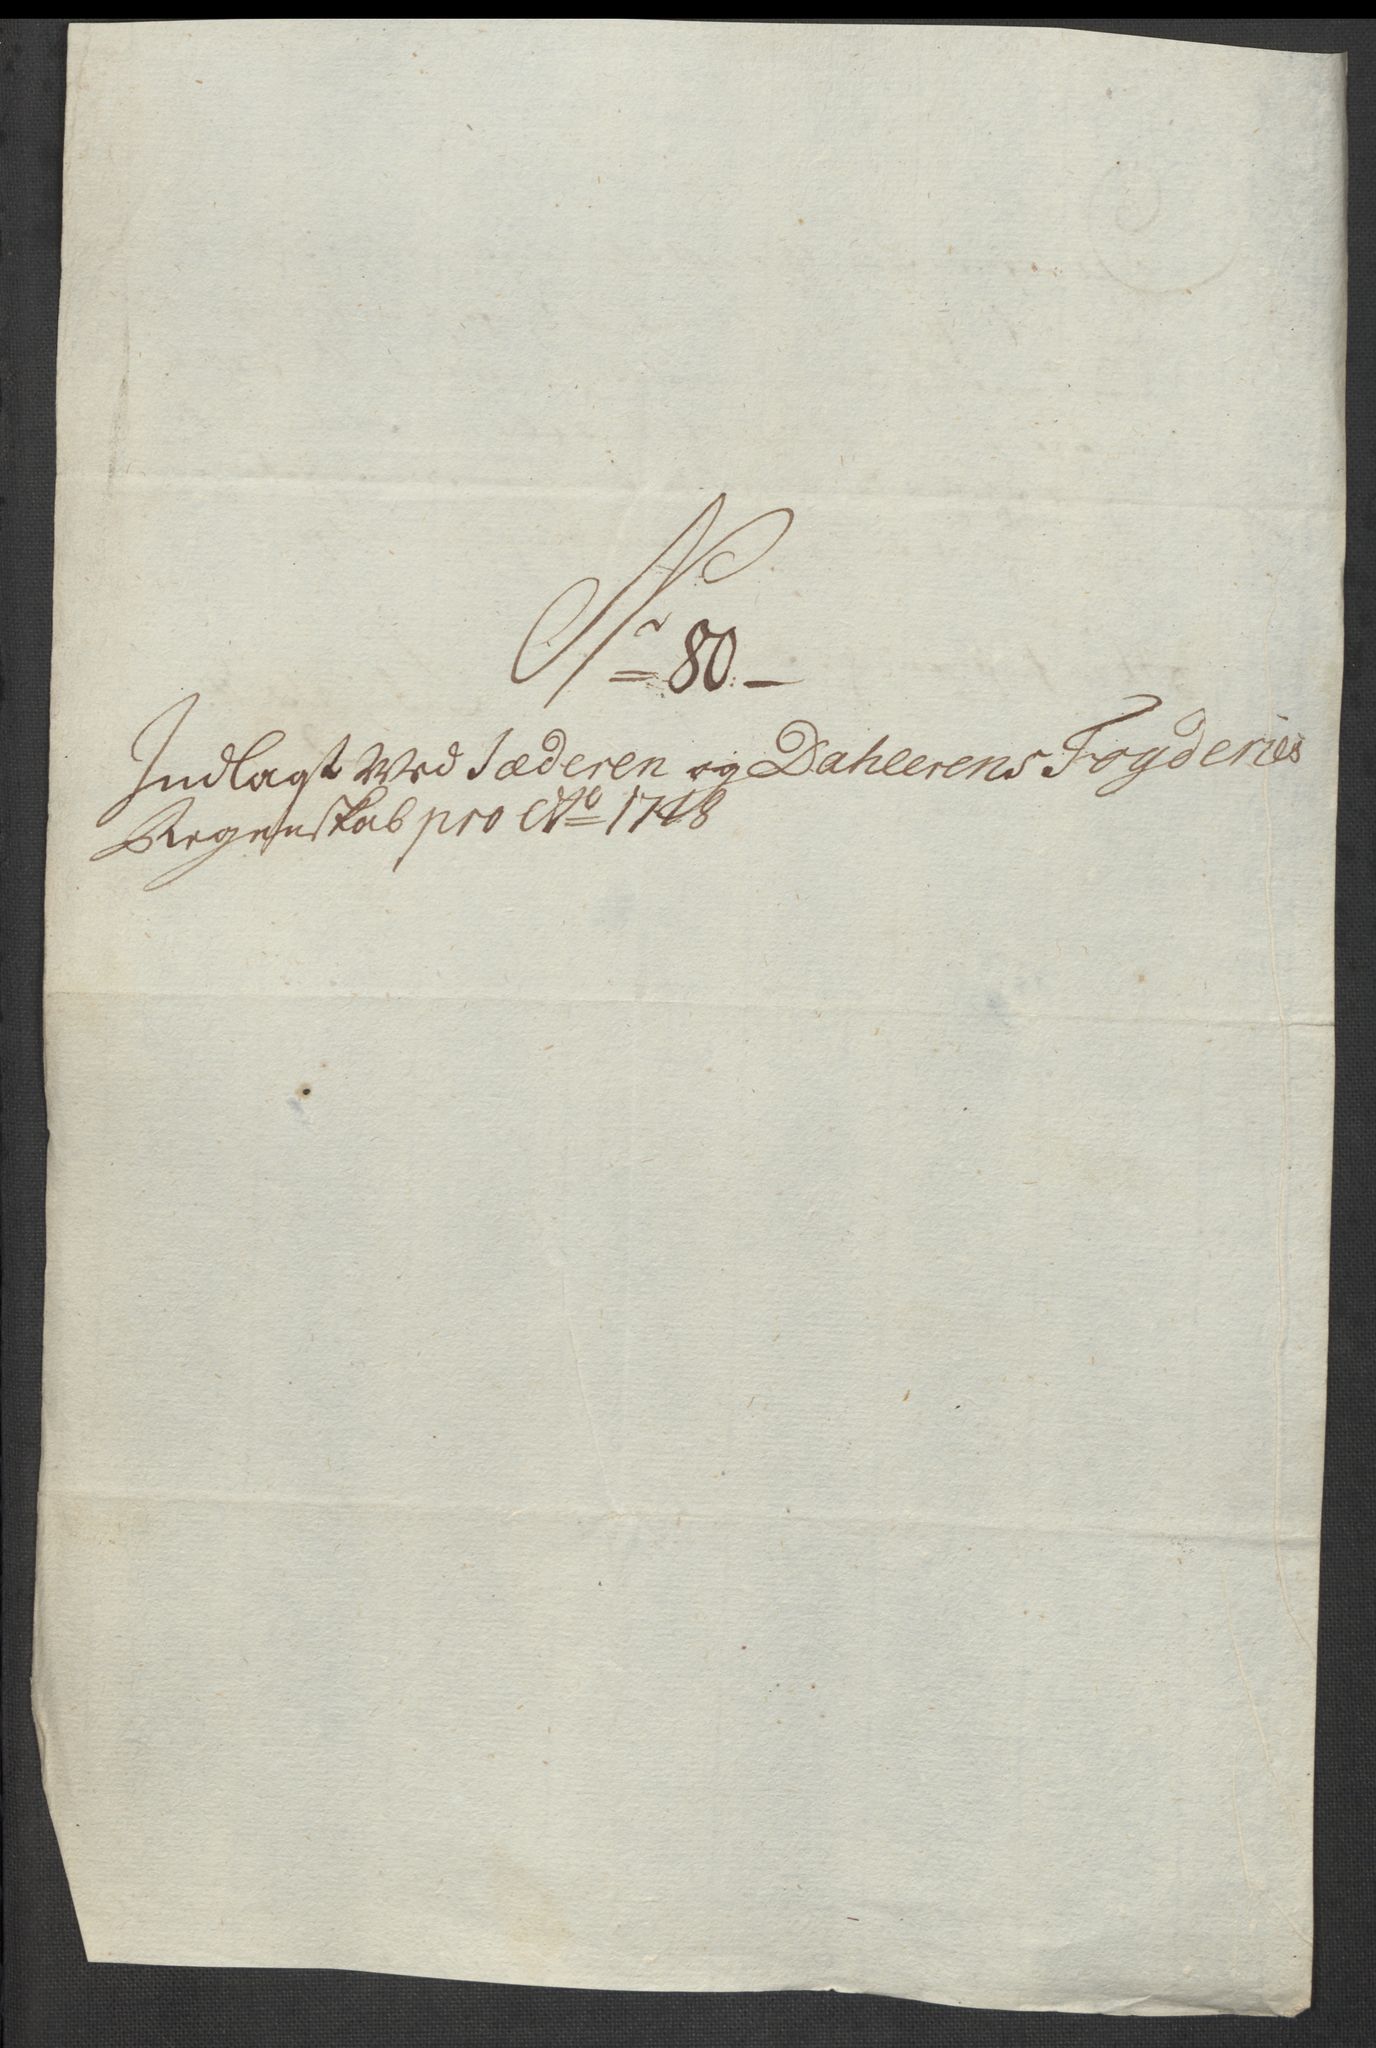 Nr 80.-
Indlagt Ved Jæderen og Dahlerens Fogderies
Regenskab pro Ao 1718